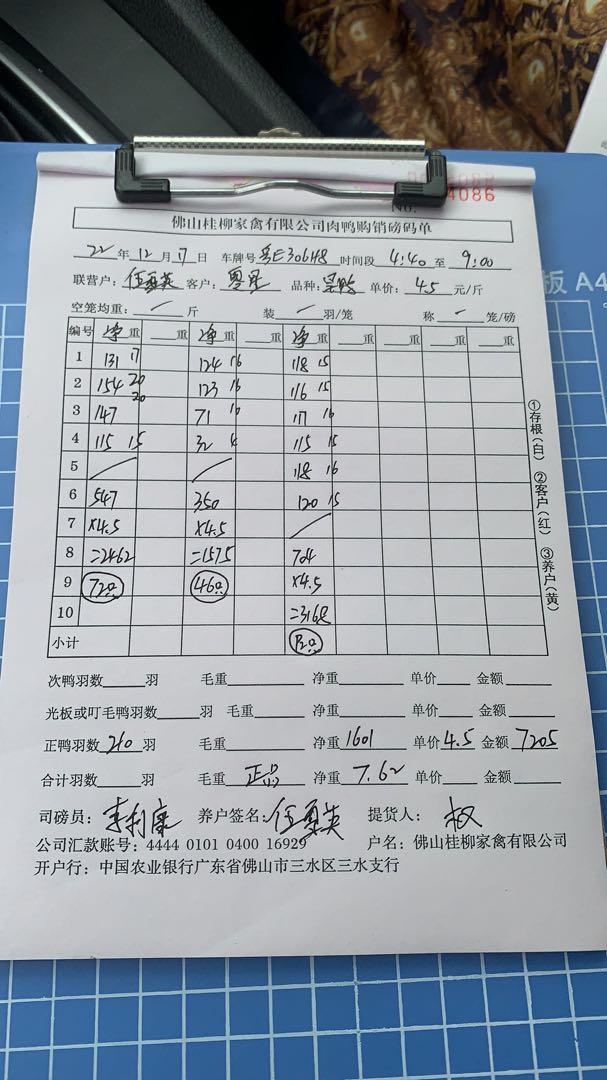 No.
4086
板 A4
佛山桂柳家禽有限公司肉鸭购销磅码单
22年12月17日 车牌号粤E306H8 时间段4:40至9:00
联营户：伍夏英 客户： 品种： 单价：4.5元/斤
空笼均重：一斤 装一羽/笼 称一笼/磅
编号 净重 重 净重 重 净重 重 重 重 重
1 131 17 124 16 118 15
2 154 20 123 16 116 15
3 147 20 71 10 117 16
4 115 15 32 4 115 15
5 118 16
6 547 350 120 15
7 ×4.5 ×4.5
8 =2462 =1575 704
9 72只 46只 ×4.5
10 =3168
小计 92只
①存根(白) ②客户(红) ③养户(黄)
次鸭羽数 羽 毛重 净重 单价 金额
光板或叮毛鸭羽数 羽 毛重 净重 单价 金额
正鸭羽数210羽 毛重 净重1601 单价4.5 金额7205
合计羽数 羽 毛重正品 净重7.62 单价 金额
司磅员：李利康 养户签名：伍夏英 提货人：权
公司汇款账号：4444 0101 0400 16929 户名：佛山桂柳家禽有限公司
开户行：中国农业银行广东省佛山市三水区三水支行